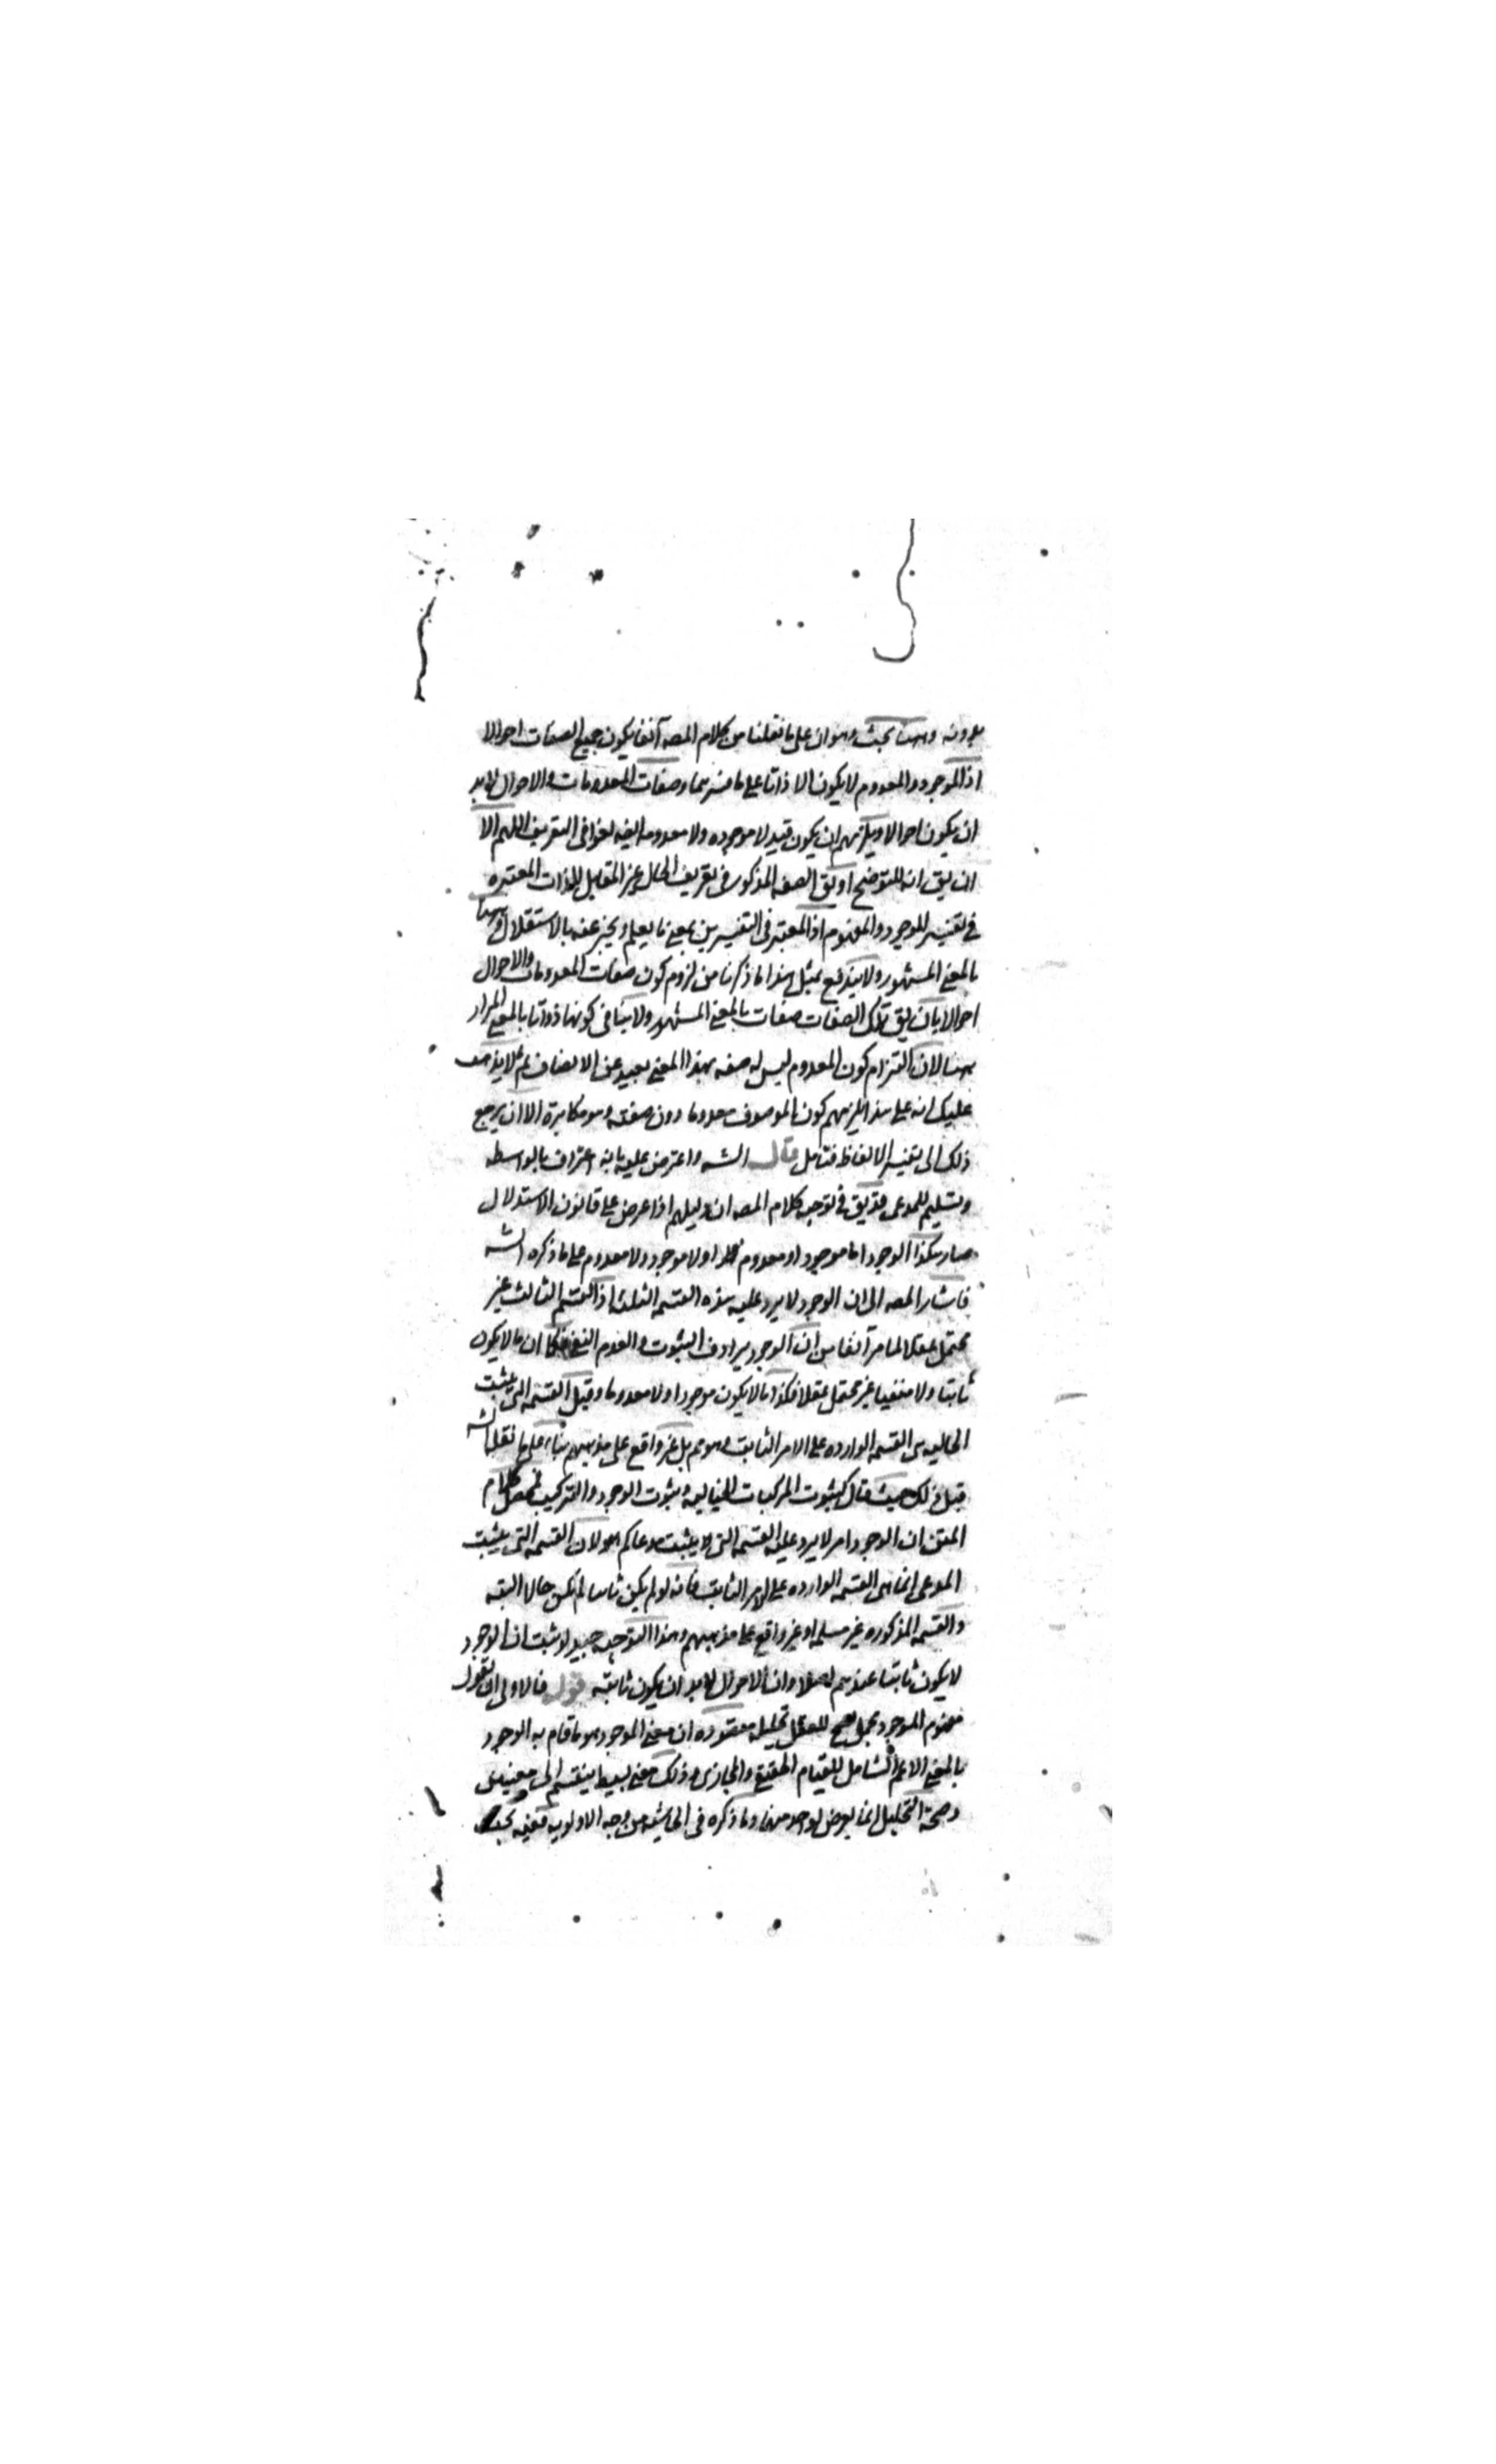 بدونه وههنا بحث وهو ان على ما نقلنا من كلام المصه آنفا يكون جميع الصفات احوالا
اذ الموجود والمعدوم لا يكون الا ذاتا على ما فسرهما وصفات المعدومات والاحوال لابد
ان يكون احوالا ويلزمهم ان يكون قيد لا موجوده ولا معدومه ايضه لغوا فى التعريف اللهم الا
ان يق انه للتوضيح او يق الصفه المذكور فى تعريف الحال غير المقابل للذات المعتبره
فى تفسير الموجود والمعدوم اذ المعتبر فى التفسيرين بمعنى ما يعلم ويخبر عنه بالاستقلال وههنا
بالمعنى المشهور ولا يندفع بمثل هذا ما ذكرنا من لزوم كون صفات المعدومات والاحوال
احوالا بان يق تلك الصفات صفات بالمعنى المشهور ولا ينافى كونها ذواتا بالمعنى المراد
ههنا لان التزام كون المعدوم ليس له صفه بهذا المعنى بعيد عن الانصاف ثم لا يذهب
عليك انه على هذا يلزمهم كون الموصوف معدوما دون صفته وهو مكابرة الا ان يرجع
ذلك الى تفسير الالفاظ فتامل قال الشه واعترض عليه بانه اعتراف بالواسطه
وتسليم للمدعى قد يق فى توجيه كلام المصه ان دليلهم اذا عرض على قانون الاستدلال
صار هكذا الوجود اما موجود او معدوم او لا موجود ولا معدوم على ما ذكره الشه
فاشار المصه الى ان الوجود لا يرد عليه هذه القسمه الثلثه اذ القسم الثالث غير
محتمل عقلا لما مر آنفا من ان الوجود يرادف الثبوت والعدم النفى فكما ان ما لا يكون
ثابتا ولا منفيا غير محتمل عقلا فكذا ما لا يكون موجودا ولا معدوما وقيل القسمه التى يثبت
الحاليه هى القسمه الوارده على الامر الثابت وهو مم بل غير واقع على مذهبهم بناء على ما نقله الشه
قبل ذلك حيث قال كثبوت المركبات الخياليه وثبوت الوجود والتركيب فمحصل كلام
المتن ان الوجود امر لا يرد عليه القسمه التى يثبت مدعاكم هو لان القسمه التى يثبت
المدعى انما هى القسمه الوارده على الامر الثابت فانه لو لم يكن ثابتا لم يكن حالا البته
والقسمه المذكوره غير مسلمه او غير واقع على مذهبهم وهذا التوجيه جيد لو ثبت ان الوجود
لا يكون ثابتا عندهم اصلا وان الاحوال لابد ان يكون ثابته قوله فالاولى ان يقول
مفهوم الموجود مجمل يصح للعقل تحليله مقصوده ان معنى الموجود هو ما قام به الوجود
بالمعنى الاعم الشامل للقيام الحقيقى والمجازى وذلك معنى بسيط ينقسم الى معنيين
وصحة التحليل انما يعرض لواحد منهما وما ذكره فى الحاشيه من وجه الاولويه ففيه بحث